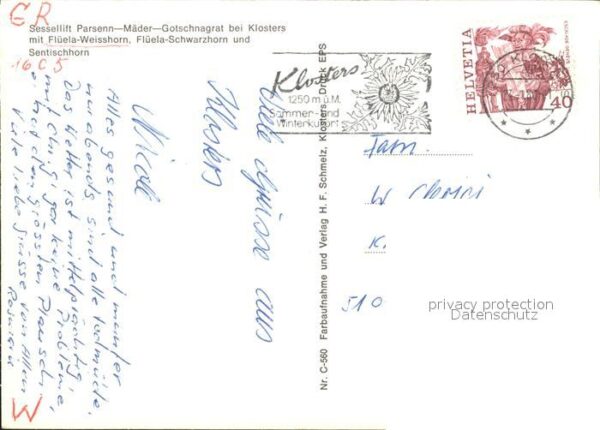 GR
Sessellift Parsenn—Mäder—Gotschnagrat bei Klosters
mit Flüela-Weisshorn, Flüela-Schwarzhorn und
Sentischhorn
16 C 5
Viele Grüsse aus
Klosters
Nicole
Alles gesund und munter
nur abends sind alle todmüde.
Das Wetter ist mittelprächtig,
mit Chigi gar keine Probleme,
er hat den grössten Plausch.
Viele liebe Grüsse von Allen
Rosmarie
W
Nr. C-560 Farbaufnahme und Verlag H. F. Schmelz, Klosters, Druck EPS
Klosters
1250 m ü.M.
Sommer- und
Winterkurort
HELVETIA
40
Fam.
W
K.
510
privacy protection
Datenschutz